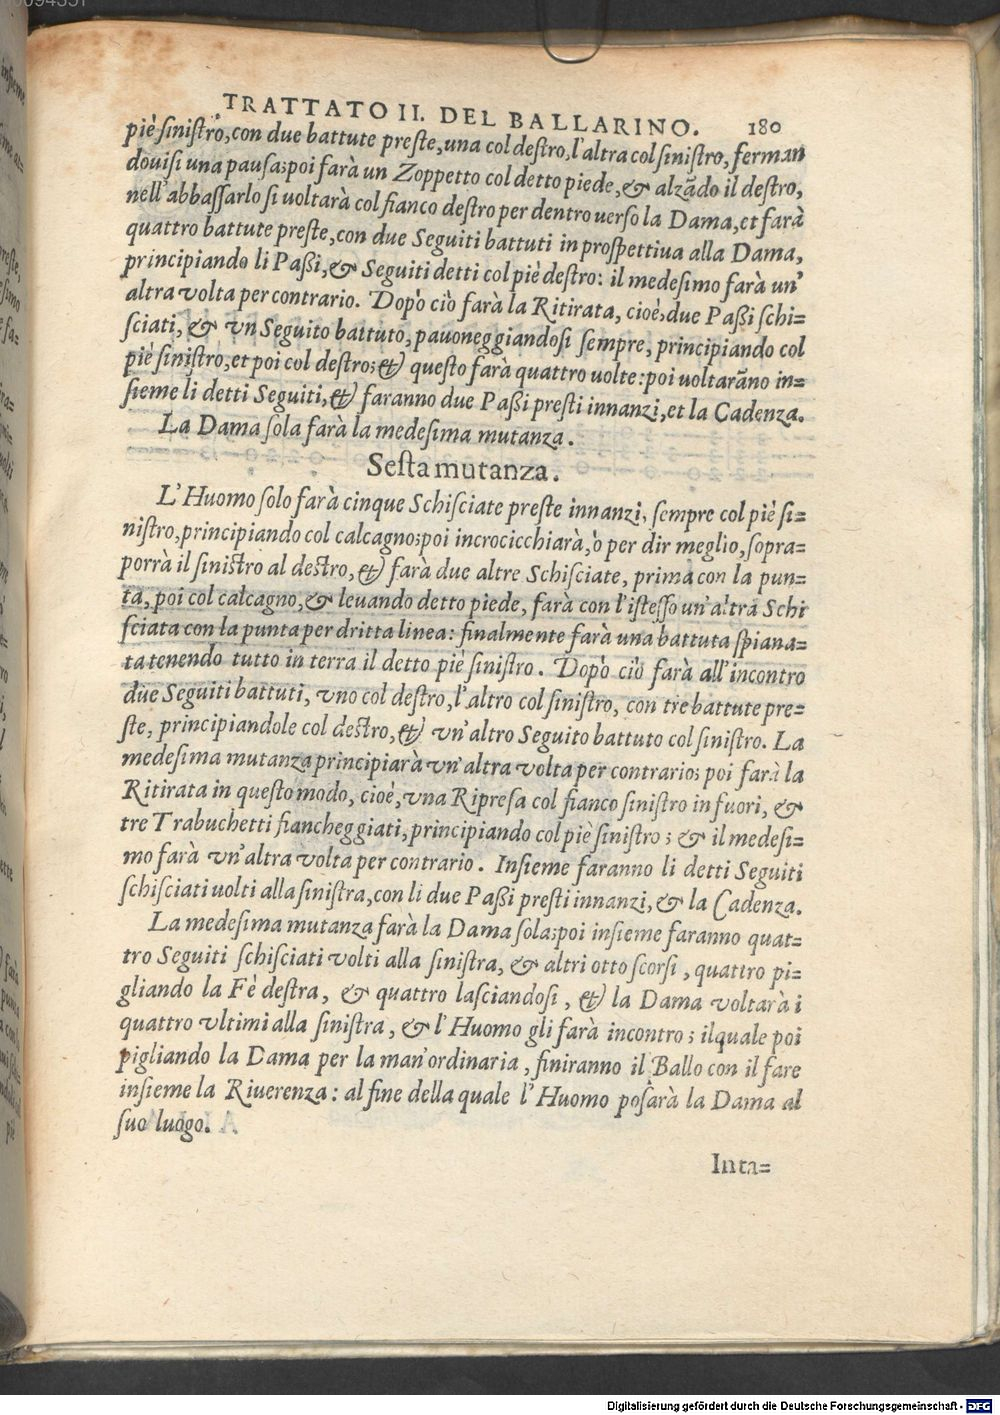 TRATTATO II. DEL BALLARINO. 180
piè sinistro, con due battute preste, una col destro, l'altra col sinistro, ferman
douisi una pausa; poi farà un Zoppetto col detto piede, & alzãdo il destro,
nell'abbassarlo si uoltarà col fianco destro per dentro uerso la Dama, et farà
quattro battute preste, con due Seguiti battuti in prospettiua alla Dama,
principiando li Passi, & Seguiti detti col piè destro: il medesimo farà un'
altra volta per contrario. Dopò ciò farà la Ritirata, cioè, due Passi schi=
sciati, & vn Seguito battuto, pauoneggiandosi sempre, principiando col
piè sinistro, et poi col destro; & questo farà quattro uolte: poi uoltarãno in=
sieme li detti Seguiti, & faranno due Passi presti innanzi, et la Cadenza.
La Dama sola farà la medesima mutanza.
Sesta mutanza.
L'Huomo solo farà cinque Schisciate preste innanzi, sempre col piè si=
nistro, principiando col calcagno; poi incrocicchiarà, ò per dir meglio, sopra=
porrà il sinistro al destro, & farà due altre Schisciate, prima con la pun=
ta, poi col calcagno, & leuando detto piede, farà con l'istesso un'altra Schi
sciata con la punta per dritta linea: finalmente farà una battuta spiana=
ta tenendo tutto in terra il detto piè sinistro. Dopò ciò farà all'incontro
due Seguiti battuti, vno col destro, l'altro col sinistro, con tre battute pre=
ste, principiandole col destro, & vn'altro Seguito battuto col sinistro. La
medesima mutanza principiarà vn'altra volta per contrario; poi farà la
Ritirata in questo modo, cioè, vna Ripresa col fianco sinistro in fuori, &
tre Trabuchetti fiancheggiati, principiando col piè sinistro; & il medesi=
mo farà vn'altra volta per contrario. Insieme faranno li detti Seguiti
schisciati uolti alla sinistra, con li due Passi presti innanzi, & la Cadenza.
La medesima mutanza farà la Dama sola; poi insieme faranno quat=
tro Seguiti schisciati volti alla sinistra, & altri otto scorsi, quattro pi=
gliando la Fè destra, & quattro lasciandosi, & la Dama voltarà i
quattro vltimi alla sinistra, & l'Huomo gli farà incontro; ilquale poi
pigliando la Dama per la man'ordinaria, finiranno il Ballo con il fare
insieme la Riuerenza: al fine della quale l'Huomo posarà la Dama al
suo luogo.
Inta=
Digitalisierung gefördert durch die Deutsche Forschungsgemeinschaft - DFG